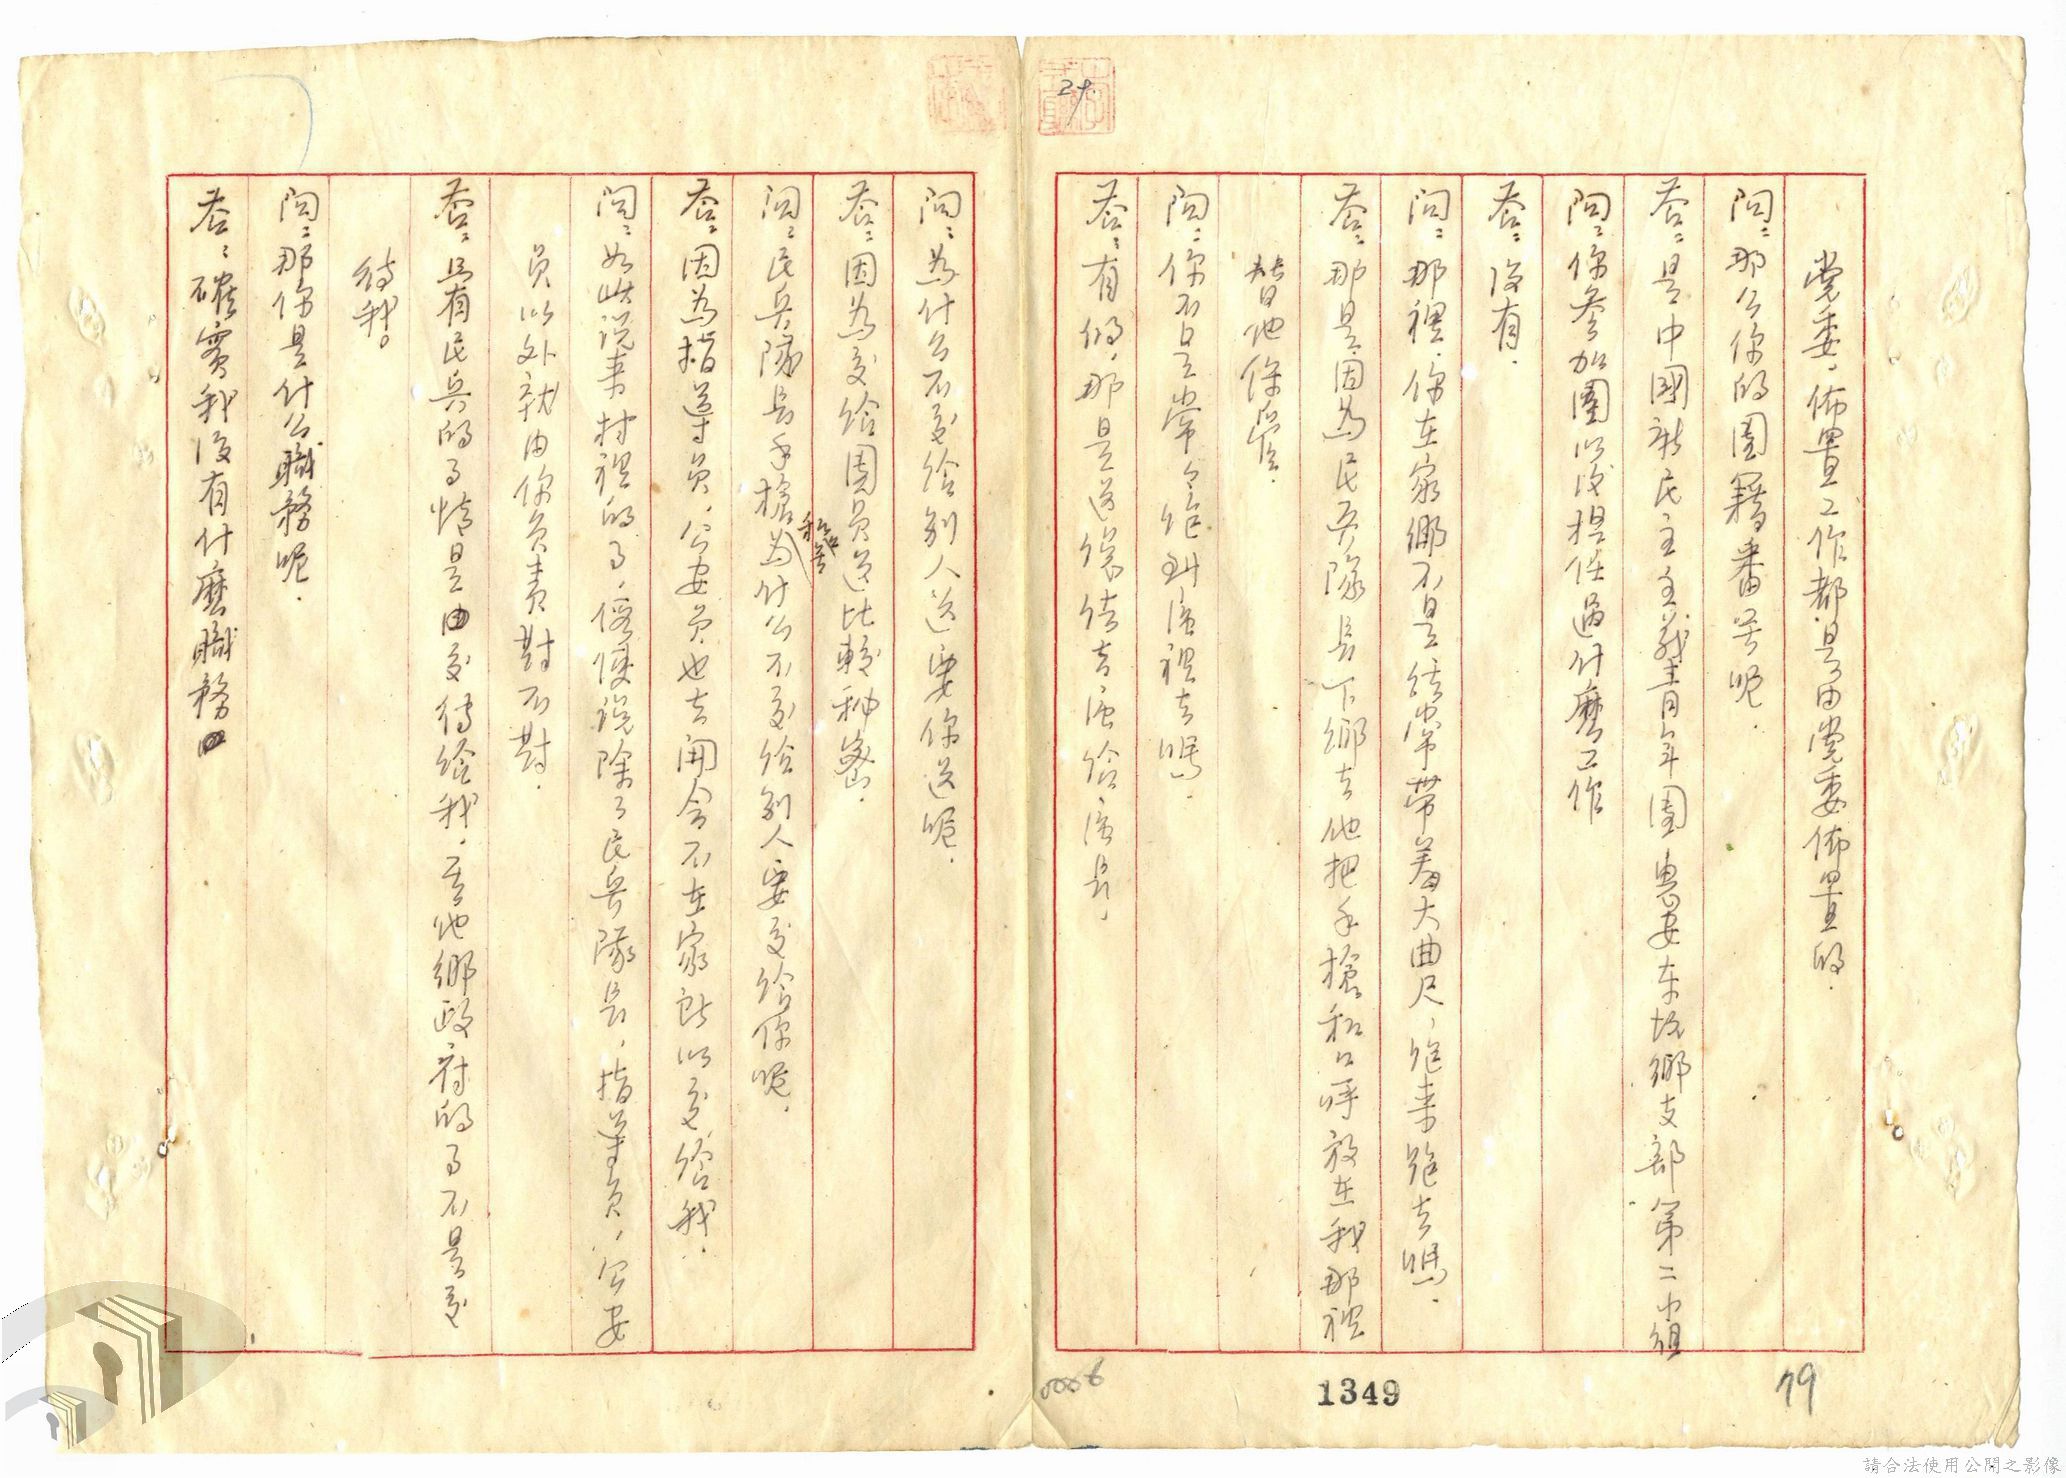 24.
黨委，佈置工作都是由黨委佈置的．
問：那么你的團籍番号呢．
答：是中國新民主主義青年團惠安东坑鄉支部第二小組
問：你參加團以後担任過什麼工作
答：沒有．
問：那裡，你在家鄉不是経常带着大曲尺，跑来跑去嗎．
答：那是因為民兵隊長下鄉去他把手槍和口呼放在我那裡
替他保管．
問：你不是常々跑到區裡去嗎．
答：有的，那是送信去區給區長．
問：為什么不交給别人送要你送呢．
答：因為交給團員送比較秘密．
問：民兵隊長手槍和口哨為什么不交給别人要交給你呢．
答：因為指導員，公安員也去開会不在家所以交給我．
問：如此说来村裡的事，便說除了民兵隊長，指導員，公安
員以外就由你負責對不對．
答：只有民兵的事情是由交待給我，其他鄉政府的事不是交
待我。
問：那你是什么職務呢．
答：確實我沒有什麼職務
0006
1349
79
請合法使用公開之影像